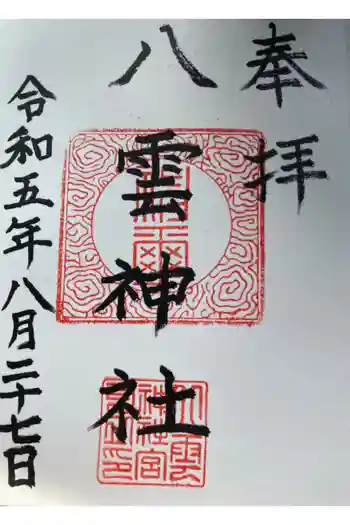 奉拝
八雲神社
令和五年八月二十七日